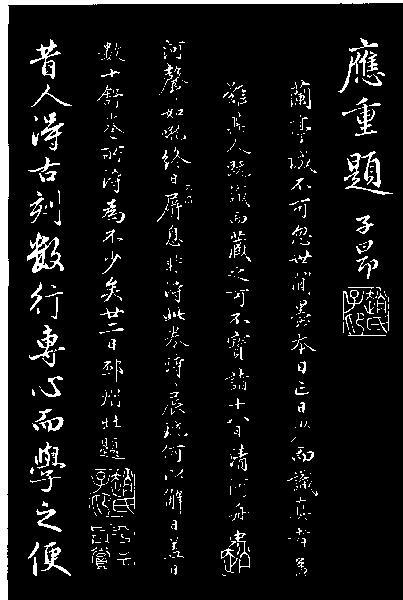 應重題 子昂
趙氏子昂
蘭亭誠不可忽世間墨本日亡日少而識真者蓋
難其人既識而藏之可不寶諸十八日清河舟
河聲如吼終日屏息非得此卷時〻展玩何以解日蓋日
數十舒卷所得為不少矣廿二日邳州北題
趙氏子昂
昔人得古刻數行專心而學之便